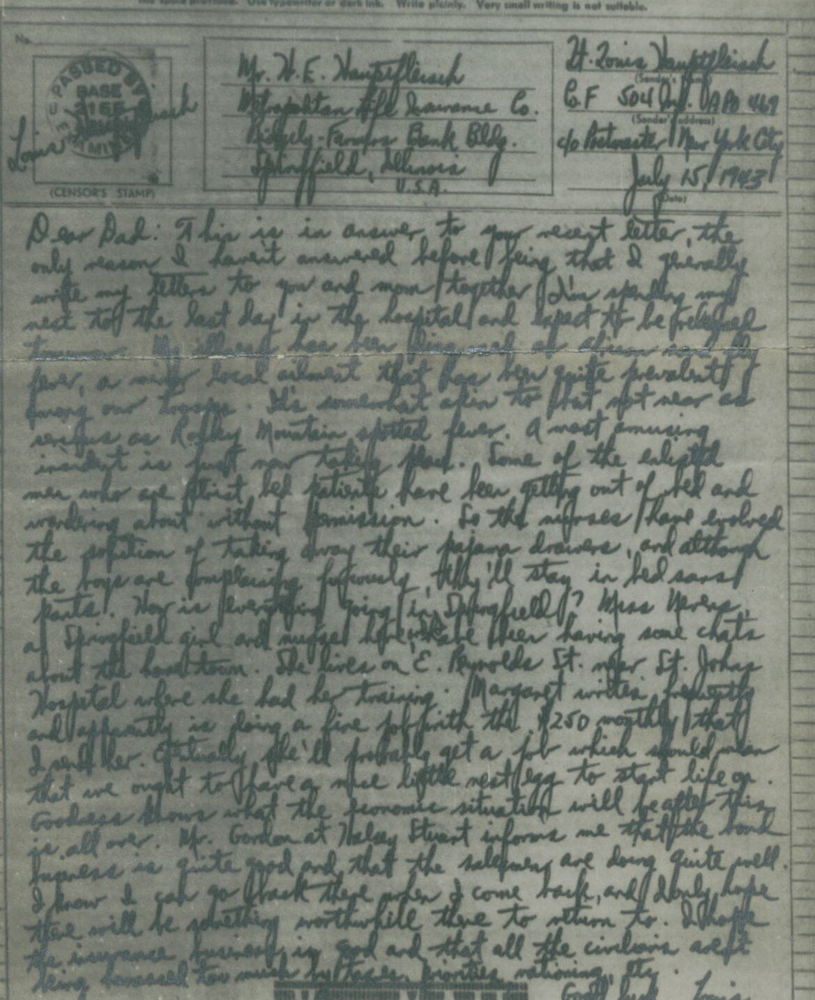 Use typewriter or dark ink. Write plainly. Very small writing is not suitable.
No.
PASSED BY
BASE
EXAMINER
(CENSOR'S STAMP)
Mr. W. E. Hauptfleisch
Metropolitan Life Insurance Co.
Ridgely-Farmers Bank Bldg.
Springfield, Illinois
U.S.A.
Lt. Louis Hauptfleisch
(Sender's name)
Co. F 504 Inf. APO 469
(Sender's address)
c/o Postmaster New York City
July 15, 1943
(Date)
Louis
Dear Dad: This is in answer to your recent letter, the
only reason I haven't answered before being that I generally
write my letters to you and mom together. I'm spending my
next to the last day in the hospital and expect to be released
tomorrow. My illness has been diagnosed as African sand fly
fever, a minor local ailment that has been quite prevalent
among our troops. It's somewhat akin to but not near as
serious as Rocky Mountain spotted fever. A most amusing
incident is just now taking place. Some of the enlisted
men who are strict bed patients have been getting out of bed and
wandering about without permission. So the nurses have evolved
the solution of taking away their pajama drawers, and although
the boys are complaining furiously, they'll stay in bed sans
pants. How is everything going in Springfield? Miss
a Springfield girl and nurse here, and I have been having some chats
about the home town. She lives on E. Reynolds St. near St. Johns
Hospital where she had her training. Margaret writes frequently
and apparently is doing a fine job with the $250 monthly that
I send her. Eventually she'll probably get a job which would mean
that we ought to have a nice little nest egg to start life on.
Goodness knows what the economic situation will be after this
is all over. Mr. Gordon at Halsey Stuart informs me that the bond
business is quite good and that the salesmen are doing quite well.
I know I can go back there when I come back, and I only hope
there will be something worthwhile there to return to. I hope
the insurance business is good and that all the civilians aren't
being harassed too much by taxes, priorities, rationing, etc.
Good luck Louis